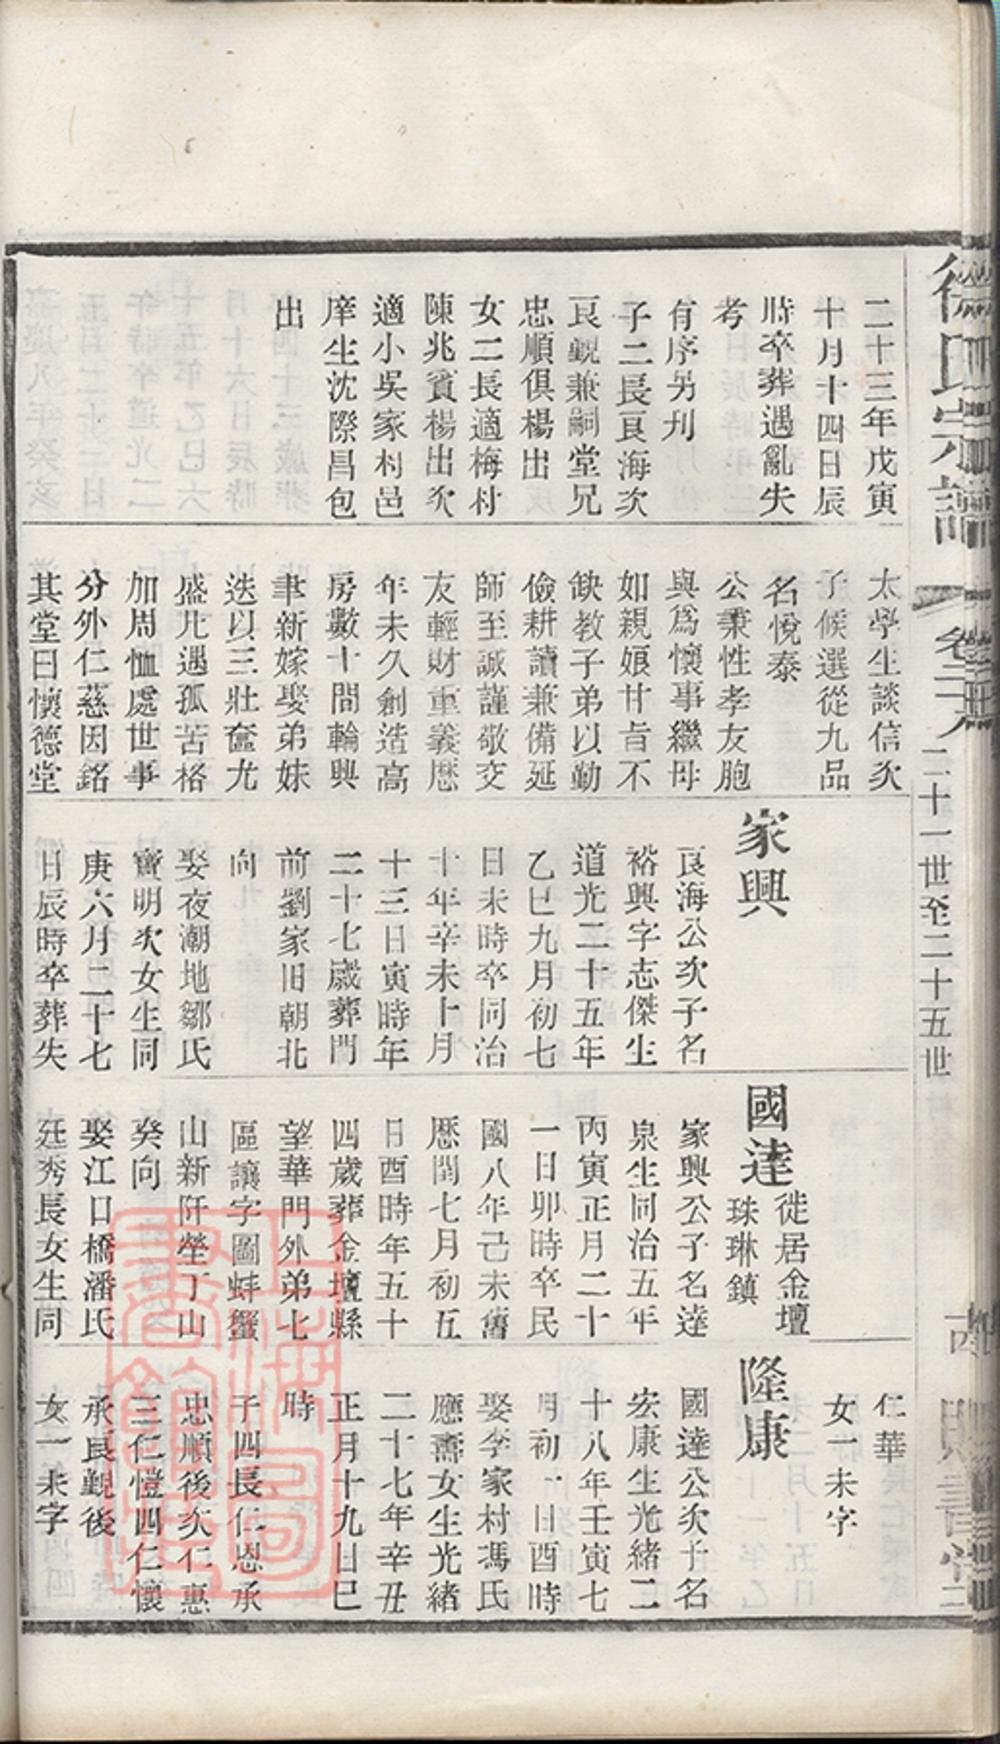 徐氏宗譜
卷二
二十一世至二十五世
二十三年戊寅
十月十四日辰
時卒葬遇亂失
考
有序另刋
子二長良海次
良觀兼嗣堂兄
忠順俱楊出
女二長適梅村
陳兆賓楊出次
適小吳家村邑
庠生沈際昌包
出
太學生談信次
子候選從九品
名悅泰
公秉性孝友胞
與爲懷事繼母
如親娘甘旨不
缺教子弟以勤
儉耕讀兼備延
師至誠謹敬交
友輕財重義厯
年未久創造高
房數十間輪興
聿新嫁娶弟妹
迭以三壯奮尤
盛凡遇孤苦格
加周恤處世事
分外仁慈因銘
其堂曰懷德堂
家興
良海公次子名
裕興字志傑生
道光二十五年
乙巳九月初七
日未時卒同治
十年辛未十月
十三日寅時年
二十七歲葬門
前劉家旧朝北
向
娶夜潮地鄒氏
寶明次女生同
庚六月二十七
日辰時卒葬失
國達
徙居金壇
珠琳鎮
家興公子名達
泉生同治五年
丙寅正月二十
一日卯時卒民
國八年己未舊
厯閏七月初五
日酉時年五十
四歲葬金壇縣
望華門外弟七
區讓字圖蚌蟹
山新阡塋丁山
癸向
娶江口橋潘氏
廷秀長女生同
仁華
女一未字
隆康
國達公次子名
宏康生光緒二
十八年壬寅七
月初一日酉時
娶李家村馮氏
應燾女生光緒
二十七年辛丑
正月十九日巳
時
子四長仁恩承
忠順後次仁惠
三仁愷四仁懷
承良觀後
女一未字